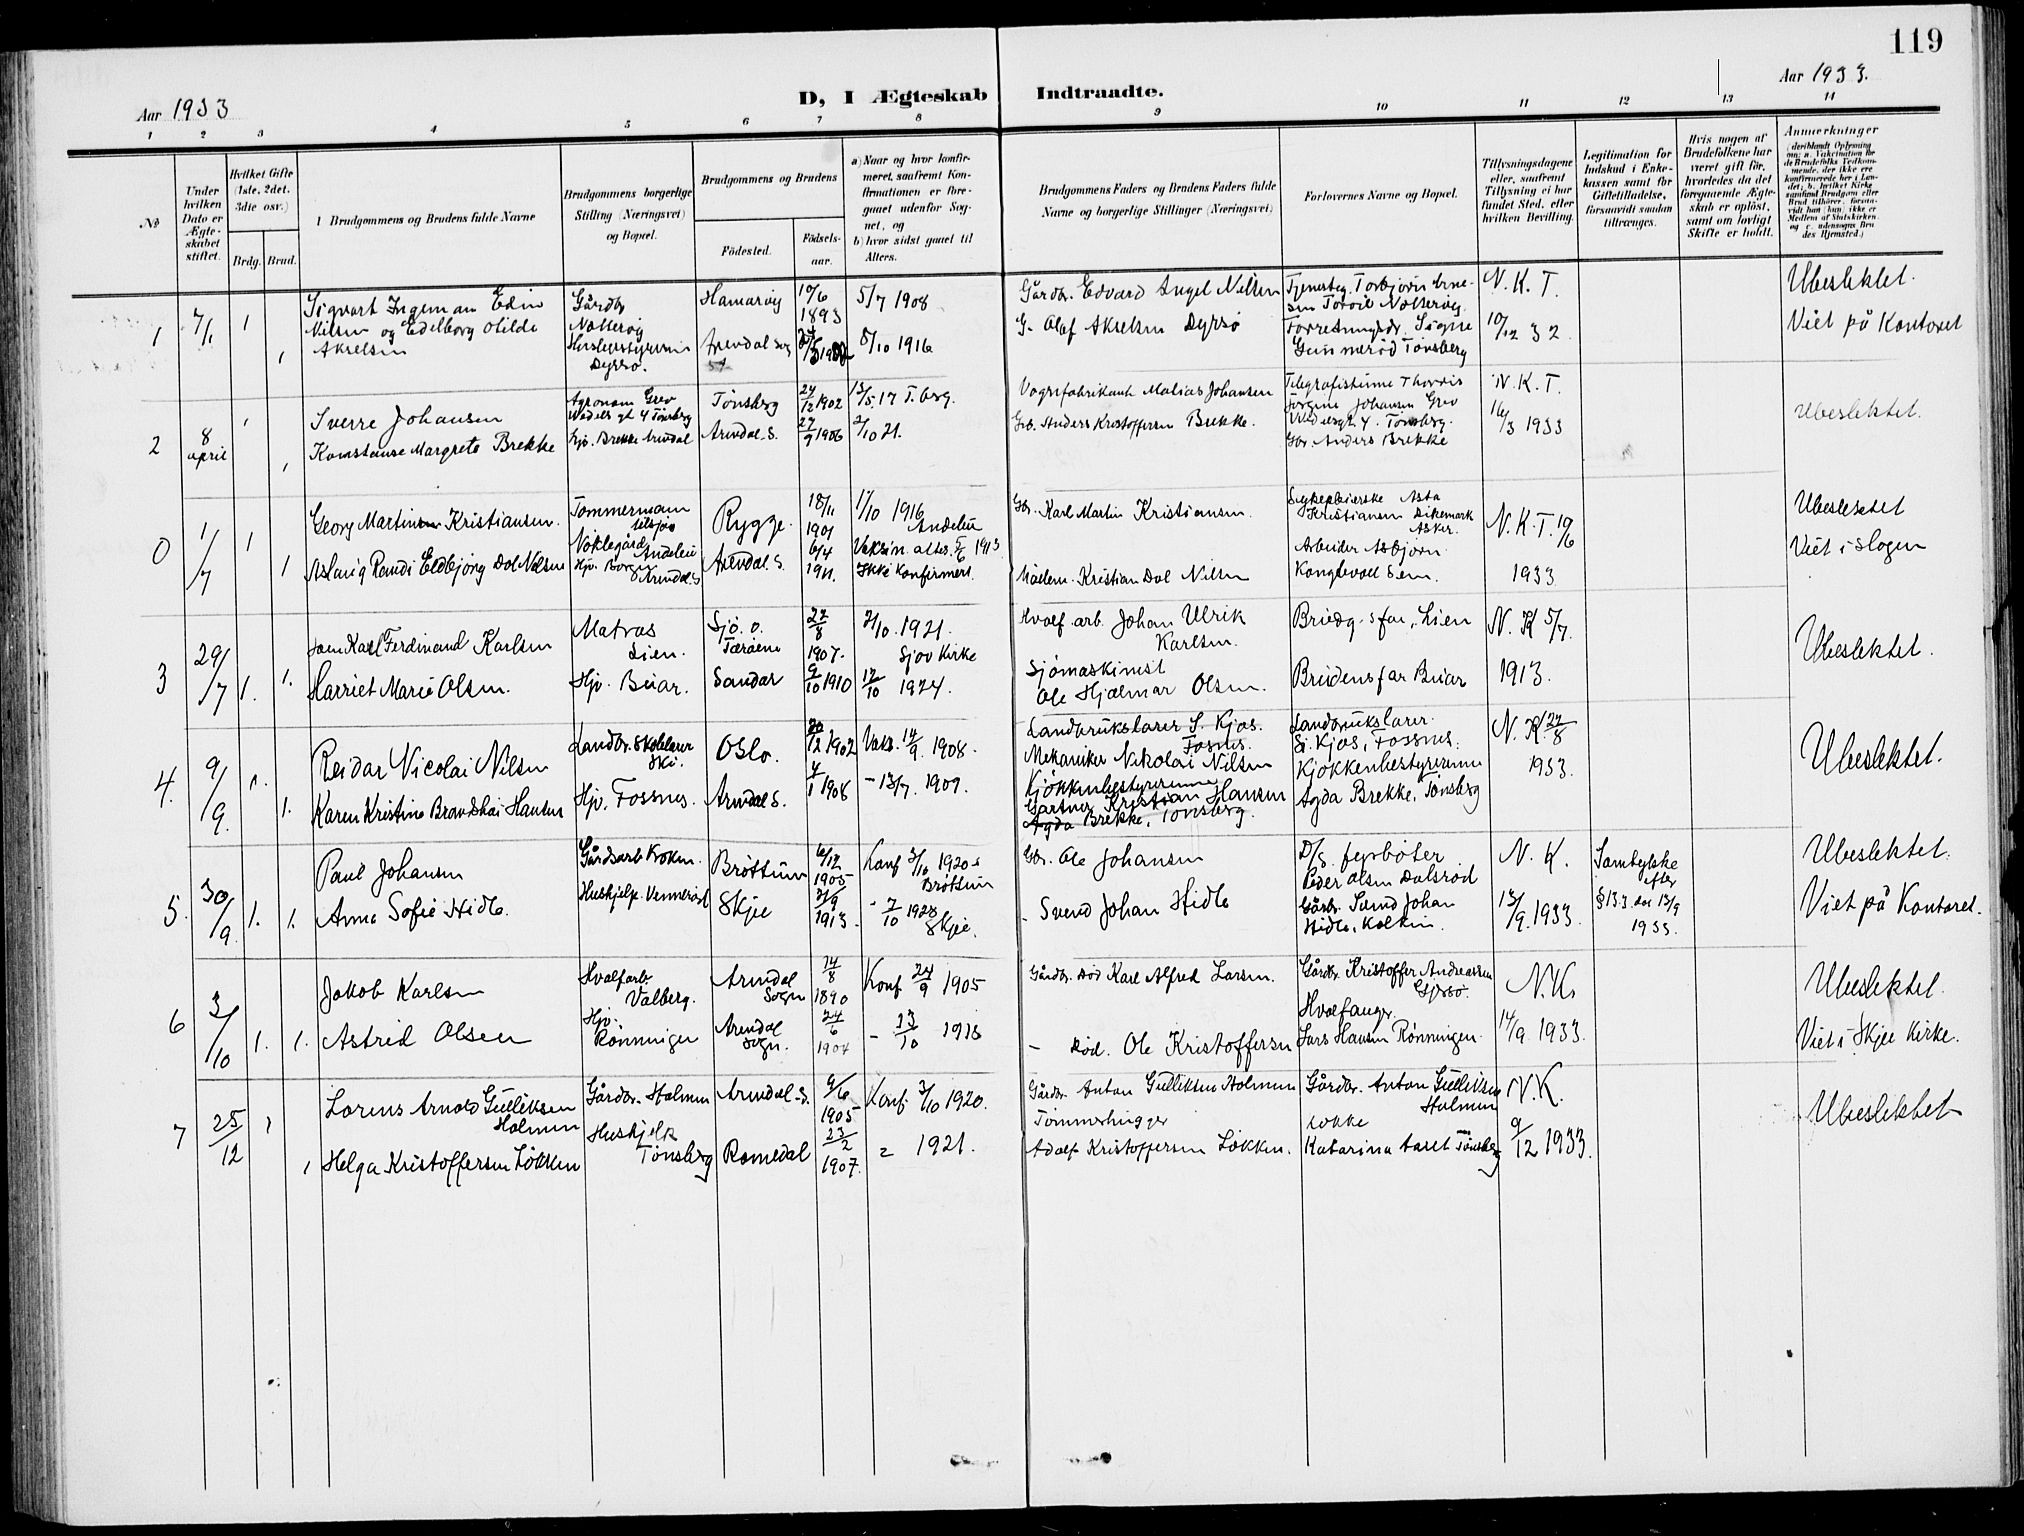 119
Aar 1933
D, I Ægteskab Indtraadte.
Aar 1933.
1 2 3 4 5 6 7 8 9 10 11 12 13 14
No
Under hvilken Dato er Ægteskabet stiftet.
Hvilket Gifte (1ste, 2det, 3die osv.)
Brdg. Brud.
1 Brudgommens og Brudens fulde Navne
Brudgommens borgerlige Stilling (Næringsvei) og Bopæl.
Brudgommens og Brudens
Födested.
Födselsaar.
a) Naar og hvor konfirmeret, saafremt Konfirmationen er foregaaet udenfor Sognet, og
b) hvor sidst gaaet til Alters.
Brudgommens Faders og Brudens Faders fulde Navne og borgerlige Stillinger (Næringsvei)
Forlovernes Navne og Bopæl.
Tillysningsdagene eller, saafremt Tillysning ei har fundet Sted, efter hvilken Bevilling.
Legitimation for Indskud i Enkekassen samt for Giftetilladelse, forsaavidt saadan tiltrænges.
Hvis nogen af Brudefolkene har været gift før, hvorledes da det foregaaende Ægteskab er oplöst, samt om lovligt Skifte er holdt.
Anmerkninger
1 7/1 1 1
Sigvart Ingeman Edin
Nilsen og Edelborg Otilde
Akselsen
Gårdbr
Nøtterøy
Dyrsø.
Hamarøy
Arendal sog
10/6
1893
5/7 1908
8/10 1916
Gårdbr. Edvard Angel Nilsen
G. Olaf Akselsen Dyrsø
Gunnerød Tønsberg
N. K. T.
10/12 32
Ubeslektet.
Viet på Kontoret
2 8 april 1 1
Sverre Johansen
Konstanse Margrete Brekke
Agronom Grev
Wedels gt 4 Tönsberg
Hjv. Brekke Arendal
Tönsberg
Arendal. S.
24/12 1902
27/9 1906
13/5. 17 T.berg.
2/10 21.
Vognfabrikant Matias Johansen
Grb. Anders Kristoffersen Brekke.
Telegrafistinne Thordis
Jørgine Johansen Grev
Wedelsgt. 4. Tønsberg.
Gbr. Anders Brekke
N. K. T.
16/3 1933
Ubeslektet.
0 1/7 1 1
Georg Martinsen Kristiansen.
Aslaug Randi Eldbjörg Dal Nilsen
Tømmermann
tilsjøs
Nøklegård
Andebu
Hjv. Borgen
Arendal. S
Rygge.
Arendal. S.
18/11
1901
6/4
1911.
1/10 1916
Andebu
Ikke konfirmert.
Gbr. Karl Martin Kristiansen.
Mælem. Kristian Dal Nilsen
Sykepleierske Asta
Kristiansen Dikemark
Asker.
Arbeider Asbjørn
Konglevoll Sem.
N. K. T. 19/6
1933
Ubeslektet
Viet i Slagen
3 29/7 1. 1.
Karl Ferdinand Karlsen
Harriet Marie Olsen.
Matros
Lien.
Hjv. Buar.
Sandar
22/8
1907.
9/10 1910
2/10. 1921.
Kirke
12/10 1924.
Hvalf. arb. Johan Ulrik
Karlsen.
Sjömaskinist
Ole Hjalmar Olsen.
Brudg.s far, Lien
Brudens far Buar
N. K 5/7.
1913.
Ubeslektet.
4. 9/9. 1. 1.
Reidar Nicolai Nilsen
Karen Kristine Hansen
Landbr. Skolelærer
Ski.
Hjv. Fossnes.
Oslo.
Arendal S.
20/12 1902
4/1 1908
Vaks. 14/9. 1908.
- 13/7. 1909.
Landbrukslærer S. Kjos.
Fosnes.
Mekaniker Nikolai Nilsen
Kjökkenbestyrerinne
Gartner Kristian Hansen
Agda Brekke, Tönsberg.
Landbrukslærer
S. Kjos, Fossnes.
Kjökkenbestyrerinne
Agda Brekke, Tönsberg
N. K. 22/8
1933.
Ubeslektet.
5. 30/9. 1. 1.
Paul Johansen
Anna Sofie Hidle.
Gårdsarb. Kroken.
Hushjelp. Vennerød
Brøttum
Skjee
6/12
1905
21/9
1913.
Konf 3/10 1920
Brøttum
- 7/10 1928
Skjee.
Gbr. Ole Johansen
- Svend Johan Hidle
D/S. fyrbøter
Peder Olsen Dalsrød
Gårbr. Svend Johan
Hidle, Kolkin.
N. K.
13/9. 1933
Samtykke
efter
§13.3. av 13/9
1933.
Ubeslektet.
Viet på Kontoret.
6 3/10 1. 1.
Jakob Karlsen
Astrid Olsen
Hvalfarb.
Valberg.
Hjv.
Rønningen
Arendal
Sogn
Arendal
sogn.
14/8
1890
24/6
1904
Konf 24/9 1905
- 13/10 1918
Gårdbr. Død Karl Alfred Larsen.
- død. Ole Kristoffersen
Gårdbr. Kristoffer Andreassen
Gjersø.
Hvalfanger
Lars Hansen Rønningen.
N.K.
14/9. 1933.
Ubeslektet.
Viet i Skjee Kirke.
7 25/12 1 1
Lorens Arnold Gulliksen
Holmen
Helga Kristoffersen Løkken
Gårdbr. Holmen
Hushjelp
Tönsberg
Arendal. S.
Romedal
9/6
1905.
23/2
1907.
Konf. 3/10 1920.
1921.
Gårdbr. Anton Gulliksen Holmen
Tömmerhugger
Adolf Kristoffersen Løkken.
Gårdbr. Anton Gulliksen
Holmen
Katarina Aaret Tønsberg
N. K.
9/12 1933.
Ubeslektet